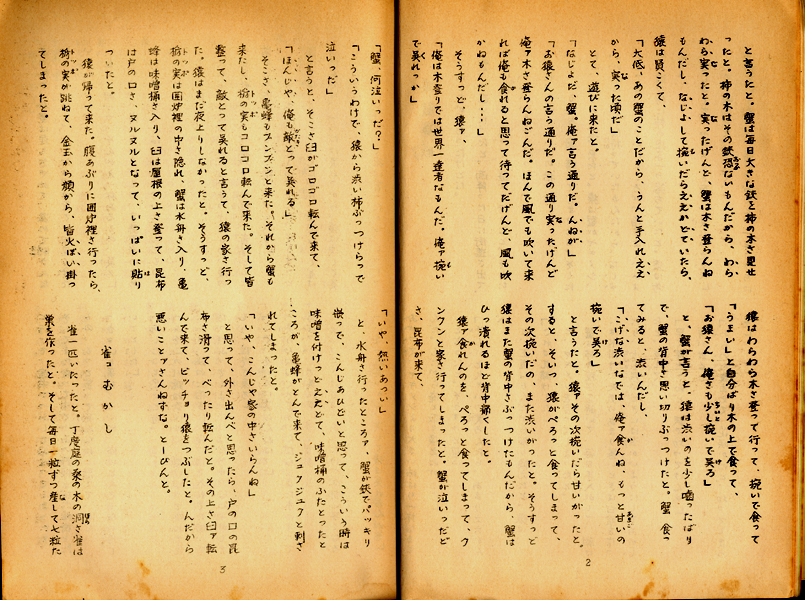 と言うたと。蟹は毎日大きな鋏を柿の木さ見せ
ったと。柿の木はその鋏おっかないもんだから、わら
わら実ったと。実ったげんど、蟹は木さ登らんね
もんだし、なじょして捥いだらええかどていたら、
猿は賢こくて、
「大低、あの蟹のことだから、うんと手入れええ
から、実った頃だ」
とて、遊びに来たと。
「なじょだ、蟹。俺ァ言う通りだ。んねが」
「お猿さんの言う通りだ。この通り実ったげんど
俺ァ木さ登らんねごんだ。ほんで風でも吹いて来
れば俺も食れると思って待ってだげんど、風も吹
かねもんだし……」
そうすっど、猿ァ、
「俺は木登りでは世界一達者なもんだ。俺ァ捥い
で呉れっか」
猿はわらわら木さ登って行って、捥いで食って
「うまい」と自分ばり木の上で食って、
「お猿さん、俺さも少し捥いで呉ろ」
と、蟹が言うと。猿は渋いのを少し噛ったばり
で、蟹の背中さ思い切りぶっつけたと。蟹食っ
てみると、渋いんだし、
「こげな渋いなでは、俺ァ食んね、もっと甘いの
捥いで呉ろ」
と言うたと。猿ァその次捥いだら甘いがったと。
すると、そいつ、猿がぺろっと食ってしまって、
その次捥いだの、また渋いがったと。そうすっど
猿はまた蟹の背中さぶっつけたもんだから、蟹は
ひっ潰れるほど背中痛くしたと。
猿ァ食れんのを、ぺろっと食ってしまって、ク
ンクンと家さ行ってしまったと。蟹が泣いっだど
さ、昆布が来て、
2
「蟹、何泣いっだ？」
「こういうわけで、猿から渋い柿ぶっつけらっで
泣いっだ」
と言うと、そこさ臼がゴロゴロ転んで来て、
「ほんじゃ、俺も敵とって呉れる」
そこさ、亀蜂もブンブンと来た。それから蟹も
来たし、栃の実もコロコロ転んで来た。そして皆
整って、敵とって呉れると言うて、猿の家さ行っ
た。猿はまだ夜上りしなかったと。そうすっど、
栃の実は囲炉裡の中さ隠れ、蟹は水舟さ入り、亀
蜂は味噌桶さ入り、臼は屋根の上さ登って、昆布
は戸の口さ、ヌルヌルとなって、いっぱいに貼り
ついたと。
猿が帰って来た。腹あぶりに囲炉裡さ行ったら、
栃の実が跳ねて、金玉から顔から、皆火ばい掛っ
てしまったと。
「いや、熱いあつい」
と、水舟さ行ったところァ、蟹が鋏でバッキリ
嵌って、こんじゃひどいと思って、こういう時は
味噌を付けっどええどて、味噌桶のふたとったと
ころが、亀蜂がとんで来て、ジュクジュクと刺さ
れてしまったと。
「いや、こんじゃ家の中さいらんね」
と思って、外さ出んべと思ったら、戸の口の昆
布さ滑って、べったり転んだと。その上さ臼ァ転
んで来て、ビッチョリ猿をつぶしたと。んだから
悪いことァさんねすな。とーびんと。
雀っむかし
雀一匹いたったと。丁度庭の桑の木の洞さ雀は
巣を作ったと。そして毎日一粒ずつ産して七粒た
3